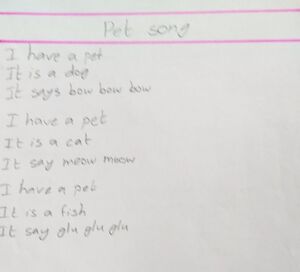 Pet song
I have a pet
It is a dog
It says bow bow bow
I have a pet
It is a cat
It say meow meow
I have a pet
It is a fish
It say glu glu glu